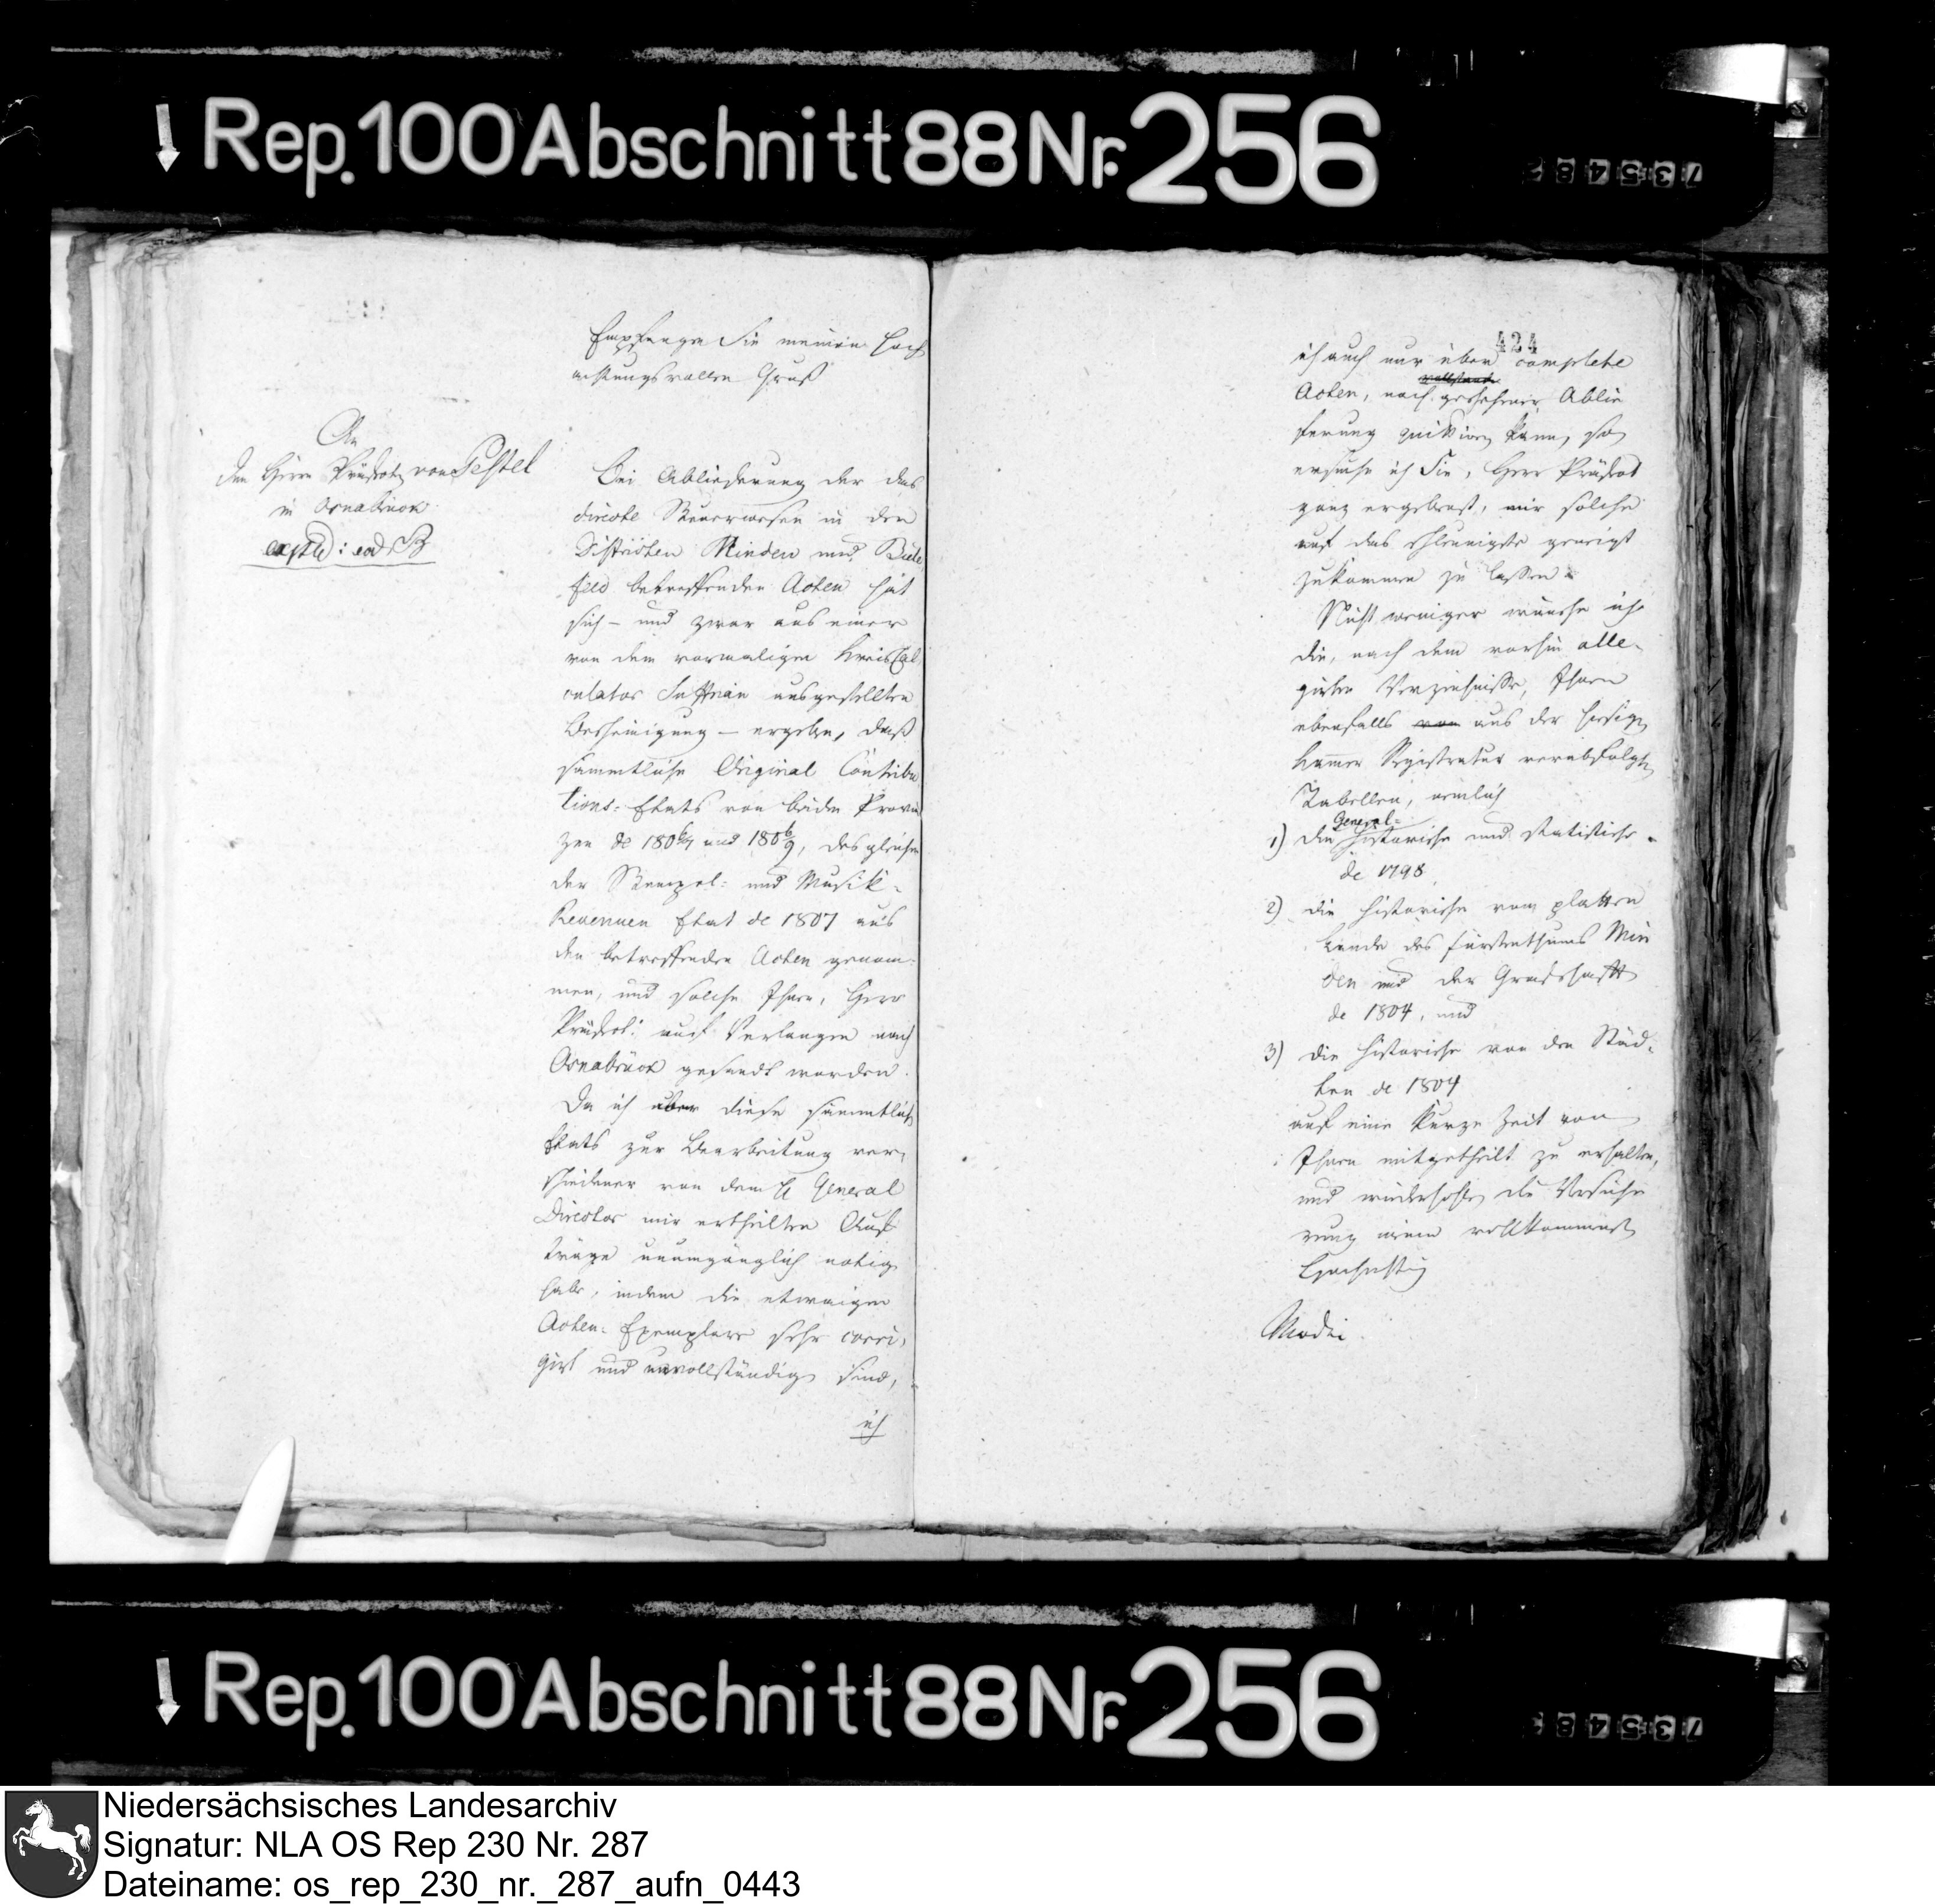 Rep. 100 Abschnitt 88 Nr. 256
Empfangen Sie meinen hoch
achtungsvollen Gruß
An
den Herrn Präfect von Pestel
in Osnabrück
exped: eod
Bei Ablieferung der das
directe Steuerwesen in den
Districten Minden und Biele
feld betreffenden Acten hat
sich – und zwar aus einer
von dem vormaligen KreisCal
culator ausgestellten
Bescheinigung – ergeben, daß
sämmtliche Original Contribu
tions-Etats von beiden Provin
zen de 180 und 180, desgleichen
der Stempel- und Musik-
Revenuen Etat de 1807 aus
den betreffenden Acten genom-
men, und solche Ihnen, Herr
Präfect: auf Verlangen nach
Osnabrück gesandt worden.
Da ich aber diese sämmtliche
Etats zur Bearbeitung ver-
schiedener von dem H General
Director mir ertheilten Auf
träge unumgänglich nötig
habe, indem die etwaigen
Acten-Exemplare sehr corri-
girt und unvollständig sind,
ich
424
ich auch nur über complete
vollständ
Acten, nach geschehener Ablie
ferung quittiren kann, so
ersuche ich Sie, Herr Präfect
ganz ergebenst, mir solche
auf das schleunigste geneigt
zukommen zu lassen.
Nicht weniger wünsche ich
die, nach dem vorhin alle-
girten Verzeichnisse, Ihnen
ebenfalls von aus der hiesigen
Kammer Registratur verabfolgten
Tabellen, nemlich
General-
1) die historische und statistische
de 1798
2) die historische vom platten
Lande des Fürstenthums Min
den und der Grafschaft
de 1804, und
3) die historische von den Städ-
ten de 1804
auf eine kurze Zeit von
Ihnen mitgetheilt zu erhalten,
und wiederhole die Versiche
rung meiner vollkommensten
Hochachtung
Rep. 100 Abschnitt 88 Nr. 256
Niedersächsisches Landesarchiv
Signatur: NLA OS Rep 230 Nr. 287
Dateiname: os_rep_230_nr._287_aufn_0443